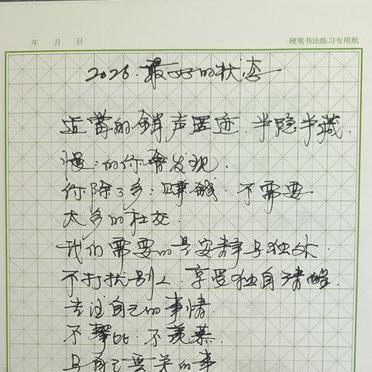 年 月 日
硬笔书法练习专用纸
2026.最好的状态
适当的销声匿迹.半隐半藏.
慢:的你会发现.
你除了多:赚钱.不需要
太多的社交
我们需要的是安静与独处
不打扰别人.享受独自清醒.
专注自己的事情
不攀比.不羡慕.
只自己要关的事